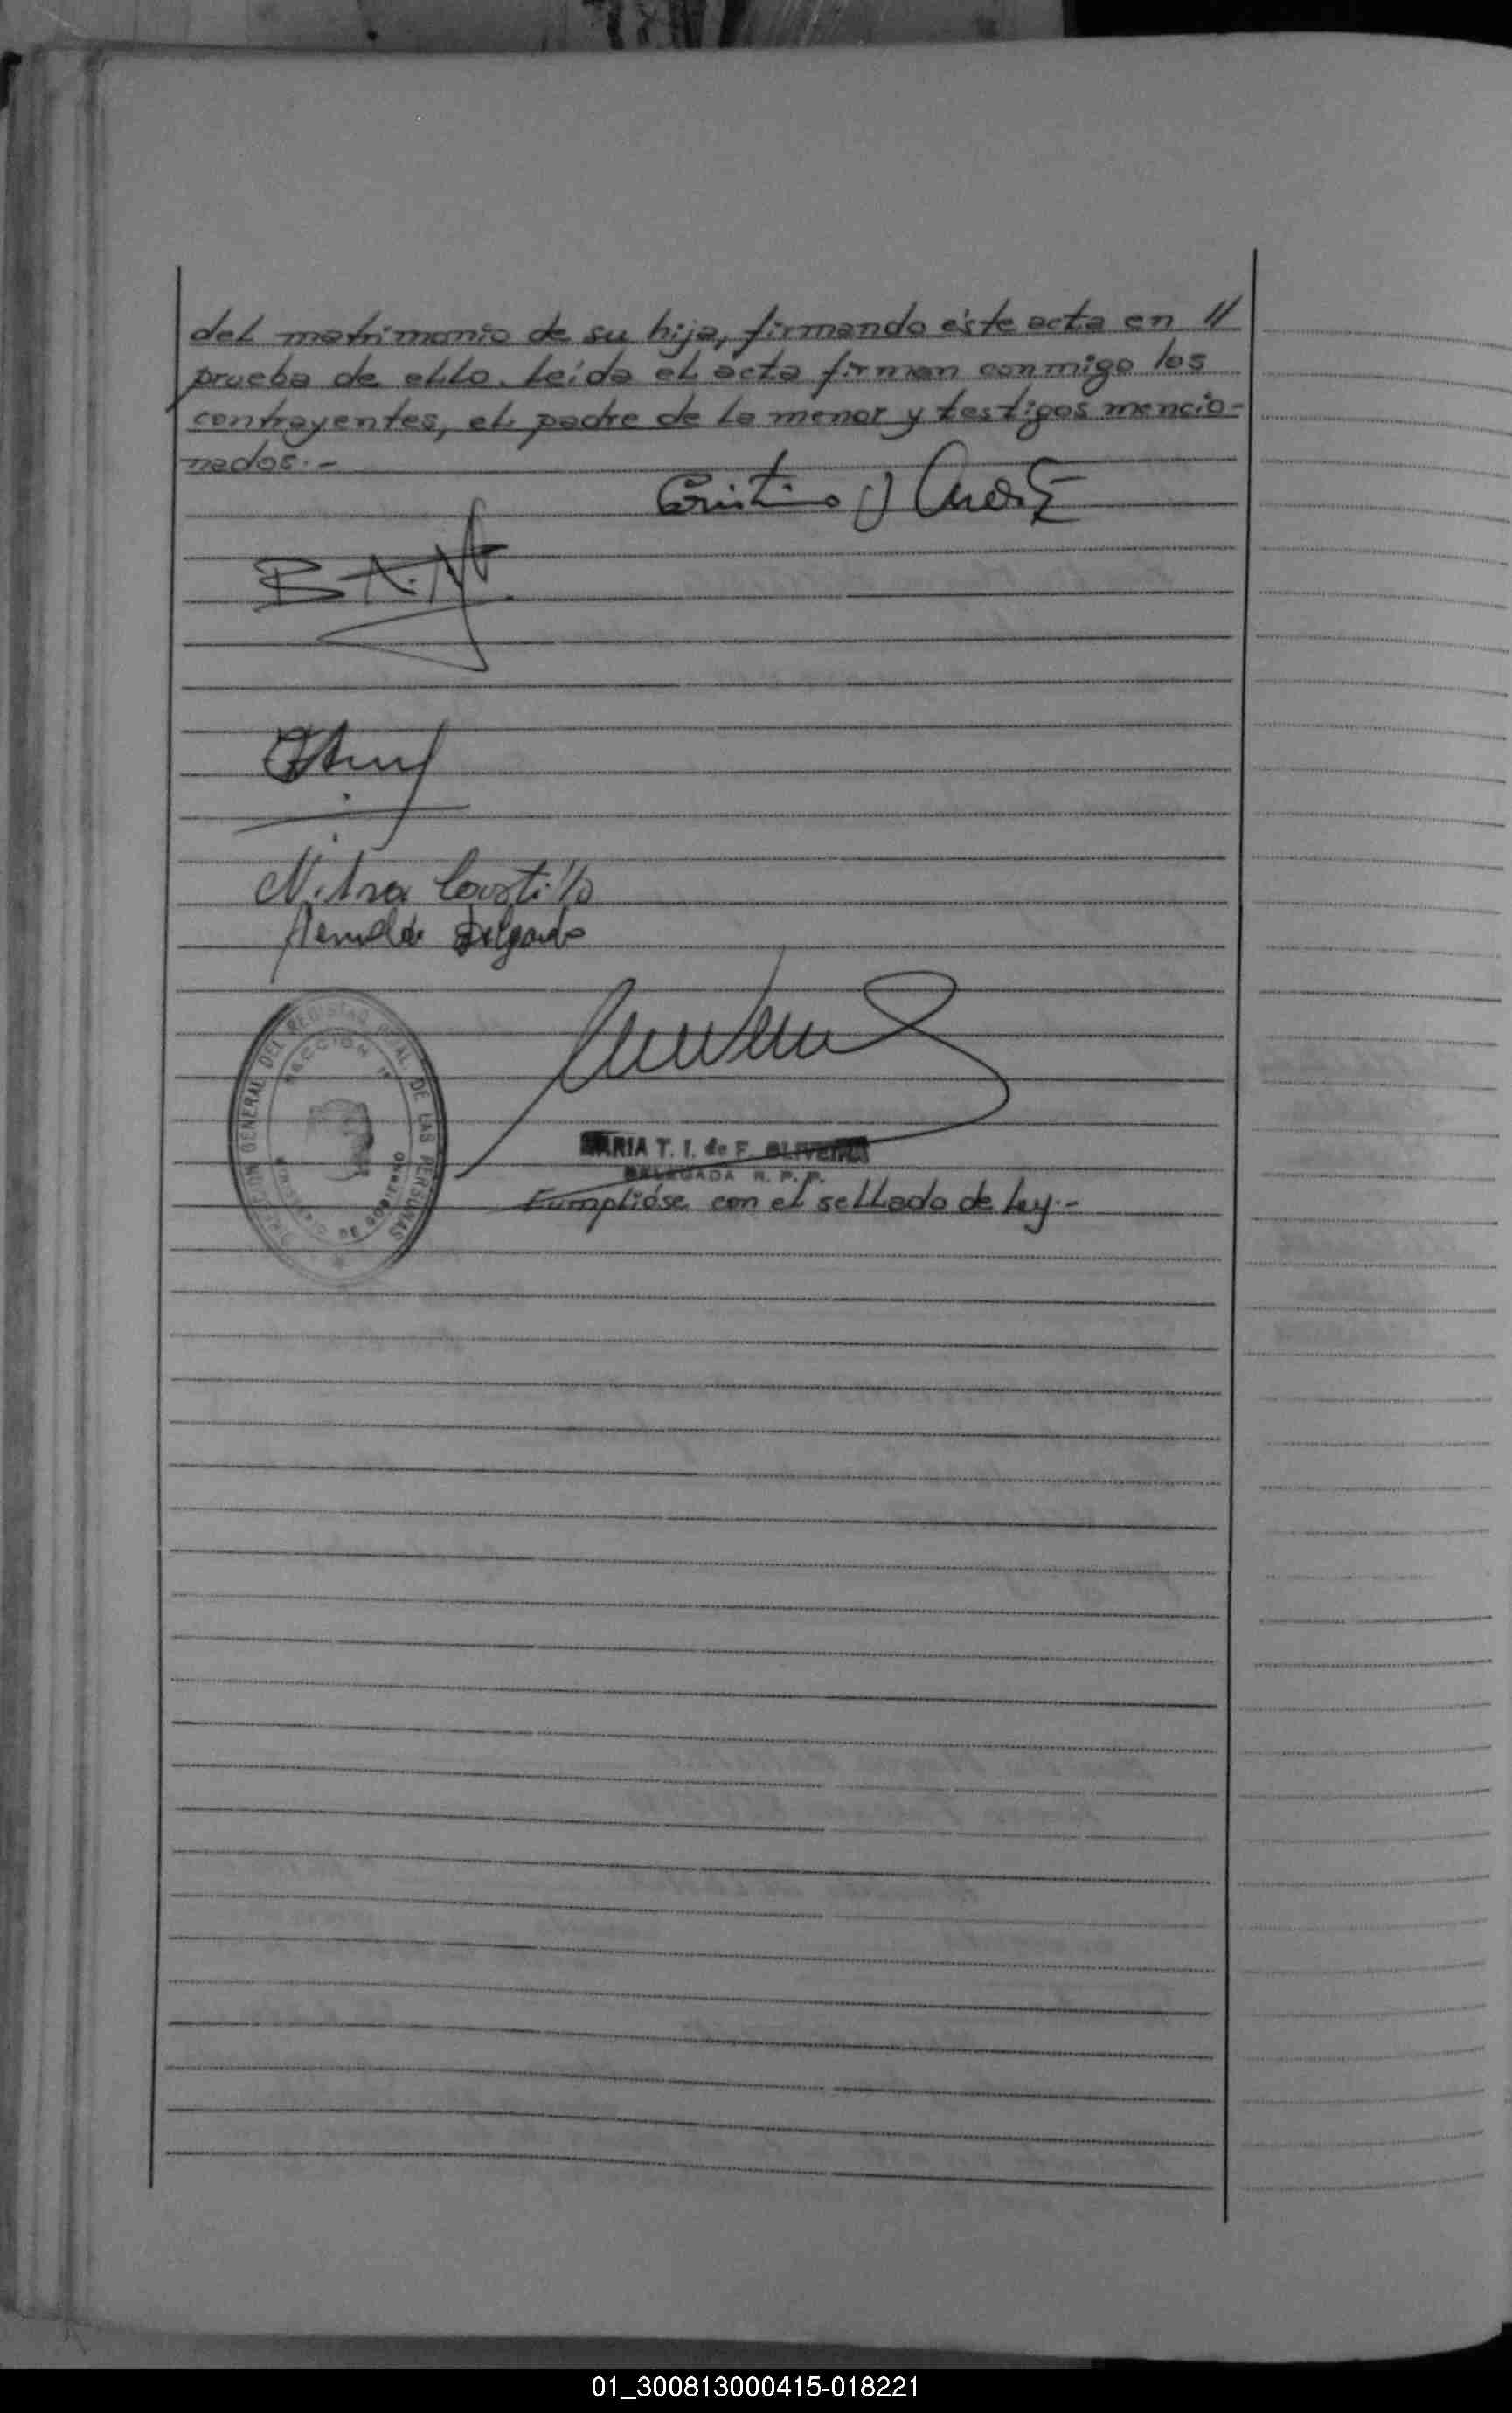 del matrimonio de su hija, firmando éste acta en //
prueba de ello. Leída el acta firman conmigo los
contrayentes, el padre de la menor y testigos mencio-
nados.-
Castillo
Delgado
DIRECCION GENERAL DEL REGISTRO REAL DE LAS PERSONAS
SECCION 1ª
MINISTERIO DE GOBIERNO
MARIA T. I. de F. OLIVEIRA
DELEGADA R. P. P.
Cumplióse con el sellado de ley.-
01_300813000415-018221